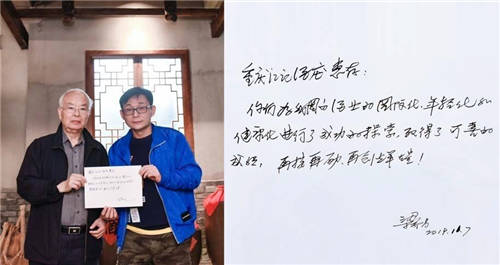 重庆江记酒庄惠存:
你们为我国白酒业的国际化、年轻化和
健康化进行了成功的探索,取得了可喜的
成绩,再接再励,再创辉煌!
2019.11.7